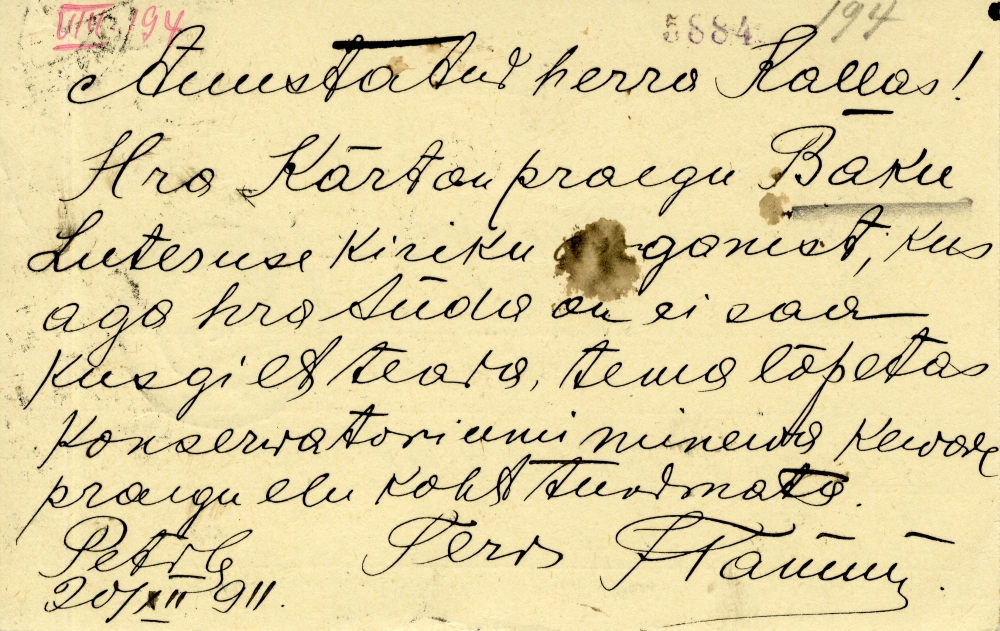 VIII 194
5884
194
Auustatud herra Kallas!
Hra Kärt on praegu Baku
Luteruse Kiriku organist, kus
aga hra Süda on ei saa
kusgilt teada, tema lõpetas
Konservatoriumi mineva kewade
praegu elu koht tundmata.
Petrbg Terv. Tamm
20/XII 911.